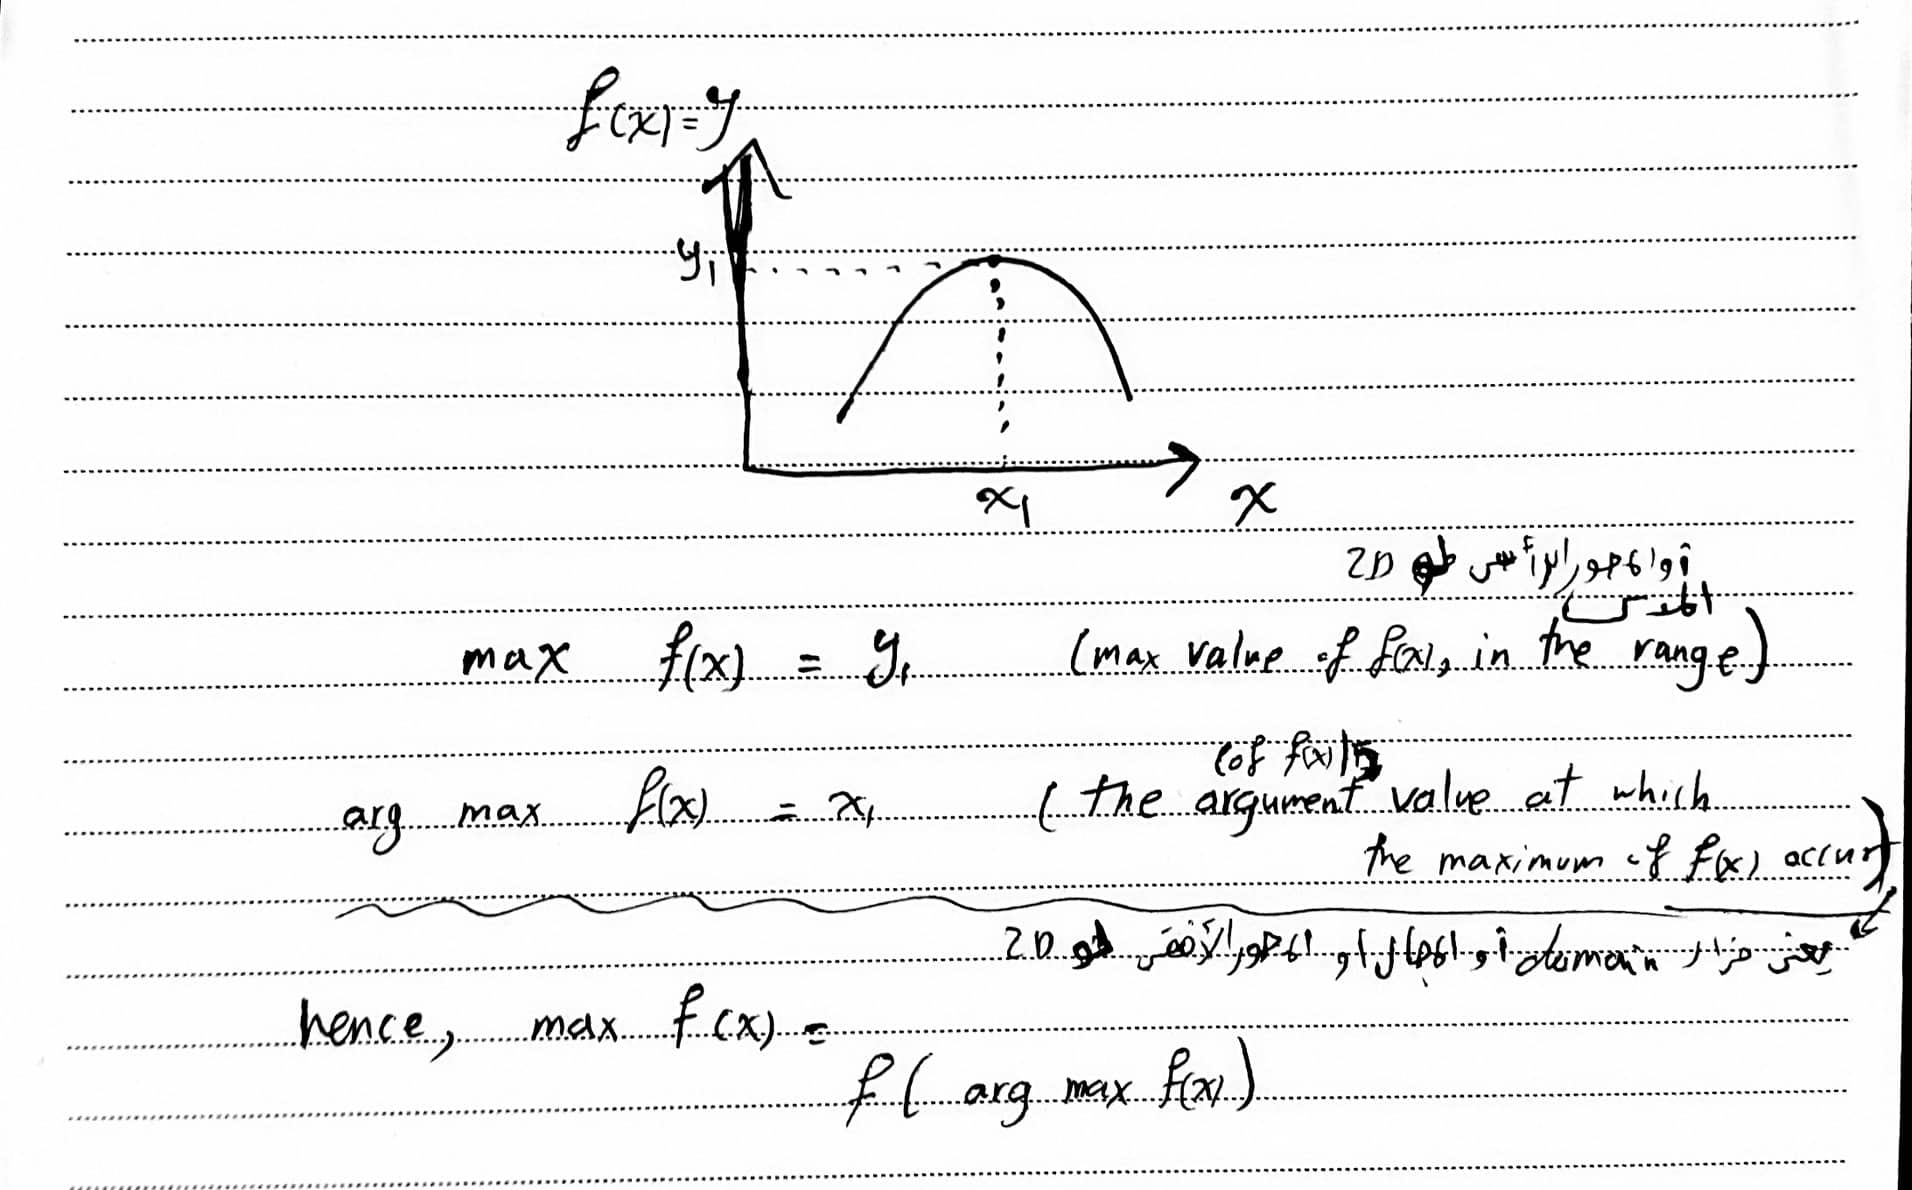 f(x)=y
y₁
x₁
x
أو المحور الرأسي لو 2D
المدى
max f(x) = y₁ (max value of f(x), in the range)
(of f(x))
arg max f(x) = x₁ (the argument value at which
the maximum of f(x) occurs)
يعني من الـ domain أو المجال أو المحور الأفقي لو 2D
hence, max f(x) =
f( arg max f(x))